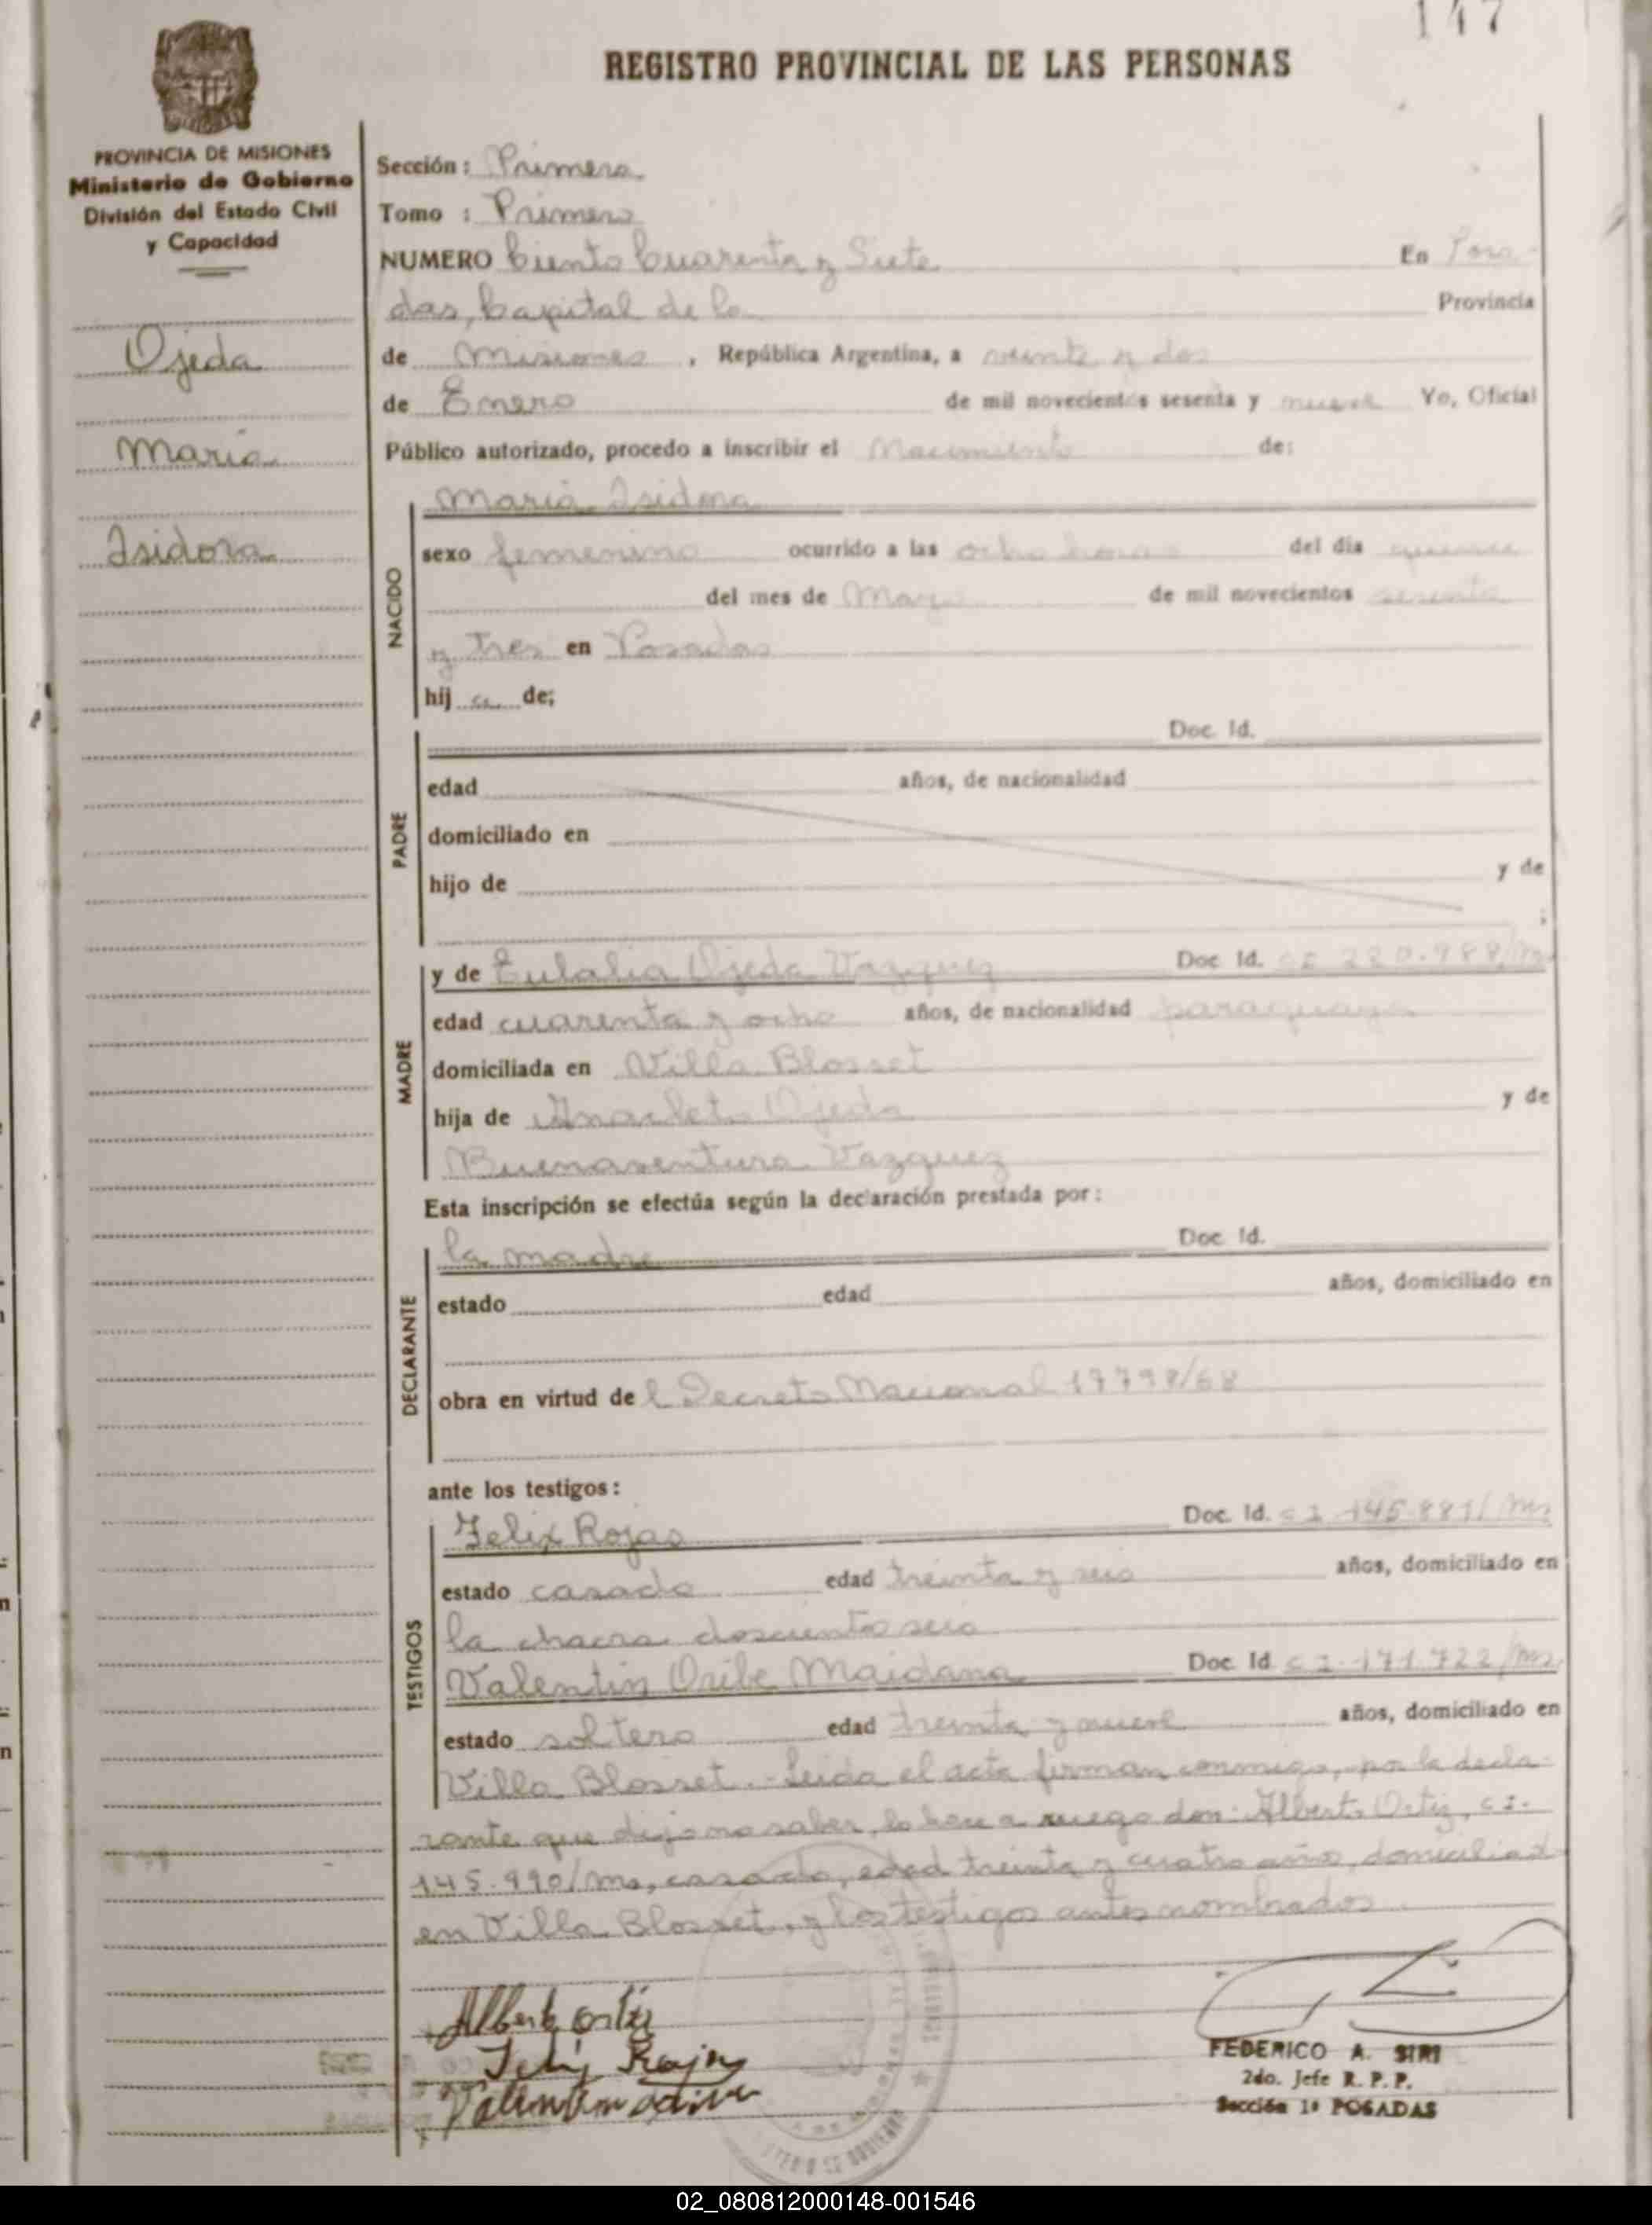 147
REGISTRO PROVINCIAL DE LAS PERSONAS
PROVINCIA DE MISIONES
Ministerio de Gobierno
División del Estado Civil
y Capacidad
Ojeda
Maria
Isidora
Sección: Primera
Tomo : Primero
NUMERO Ciento Cuarenta y Siete En Posa-
das, Capital de la Provincia
de Misiones , República Argentina, a veinte y dos
de Enero de mil novecientos sesenta y nueve Yo, Oficial
Público autorizado, procedo a inscribir el Nacimiento de:
NACIDO
Maria Isidora
sexo femenino ocurrido a las ocho horas del día quince
del mes de Mayo de mil novecientos sesenta
y tres en Posadas
hij a de;
PADRE
Doc. Id.
edad años, de nacionalidad
domiciliado en
hijo de y de
;
MADRE
y de Eulalia Ojeda Vazquez Doc Id.
edad cuarenta y ocho años, de nacionalidad paraguaya
domiciliada en Villa Blosset
hija de Anacleto Ojeda y de
Buenaventura Vazquez
Esta inscripción se efectúa según la declaración prestada por:
DECLARANTE
la madre Doc. Id.
estado edad años, domiciliado en
obra en virtud de l Decreto Nacional
ante los testigos:
TESTIGOS
Felix Rojas Doc. Id. CI 145.881/Ms
estado casado edad treinta y seis años, domiciliado en
la chacra doscientos seis
Valentin Oribe Maidana Doc. Id. CI 171.722/Ms
estado soltero edad treinta y nueve años, domiciliado en
Villa Blosset.- Leida el acta firman conmigo, por la decla-
rante que dijo no saber, lo hace a ruego don: Alberto Ortiz, CI.
145.990/Ms, casado, edad treinta y cuatro años, domiciliad
en Villa Blosset, y los testigos antes nombrados.
Alberto Ortiz
Felix Rojas
Valentin
FEDERICO A. SIRI
2do. Jefe R. P. P.
Sección 1ª POSADAS
02_080812000148-001546